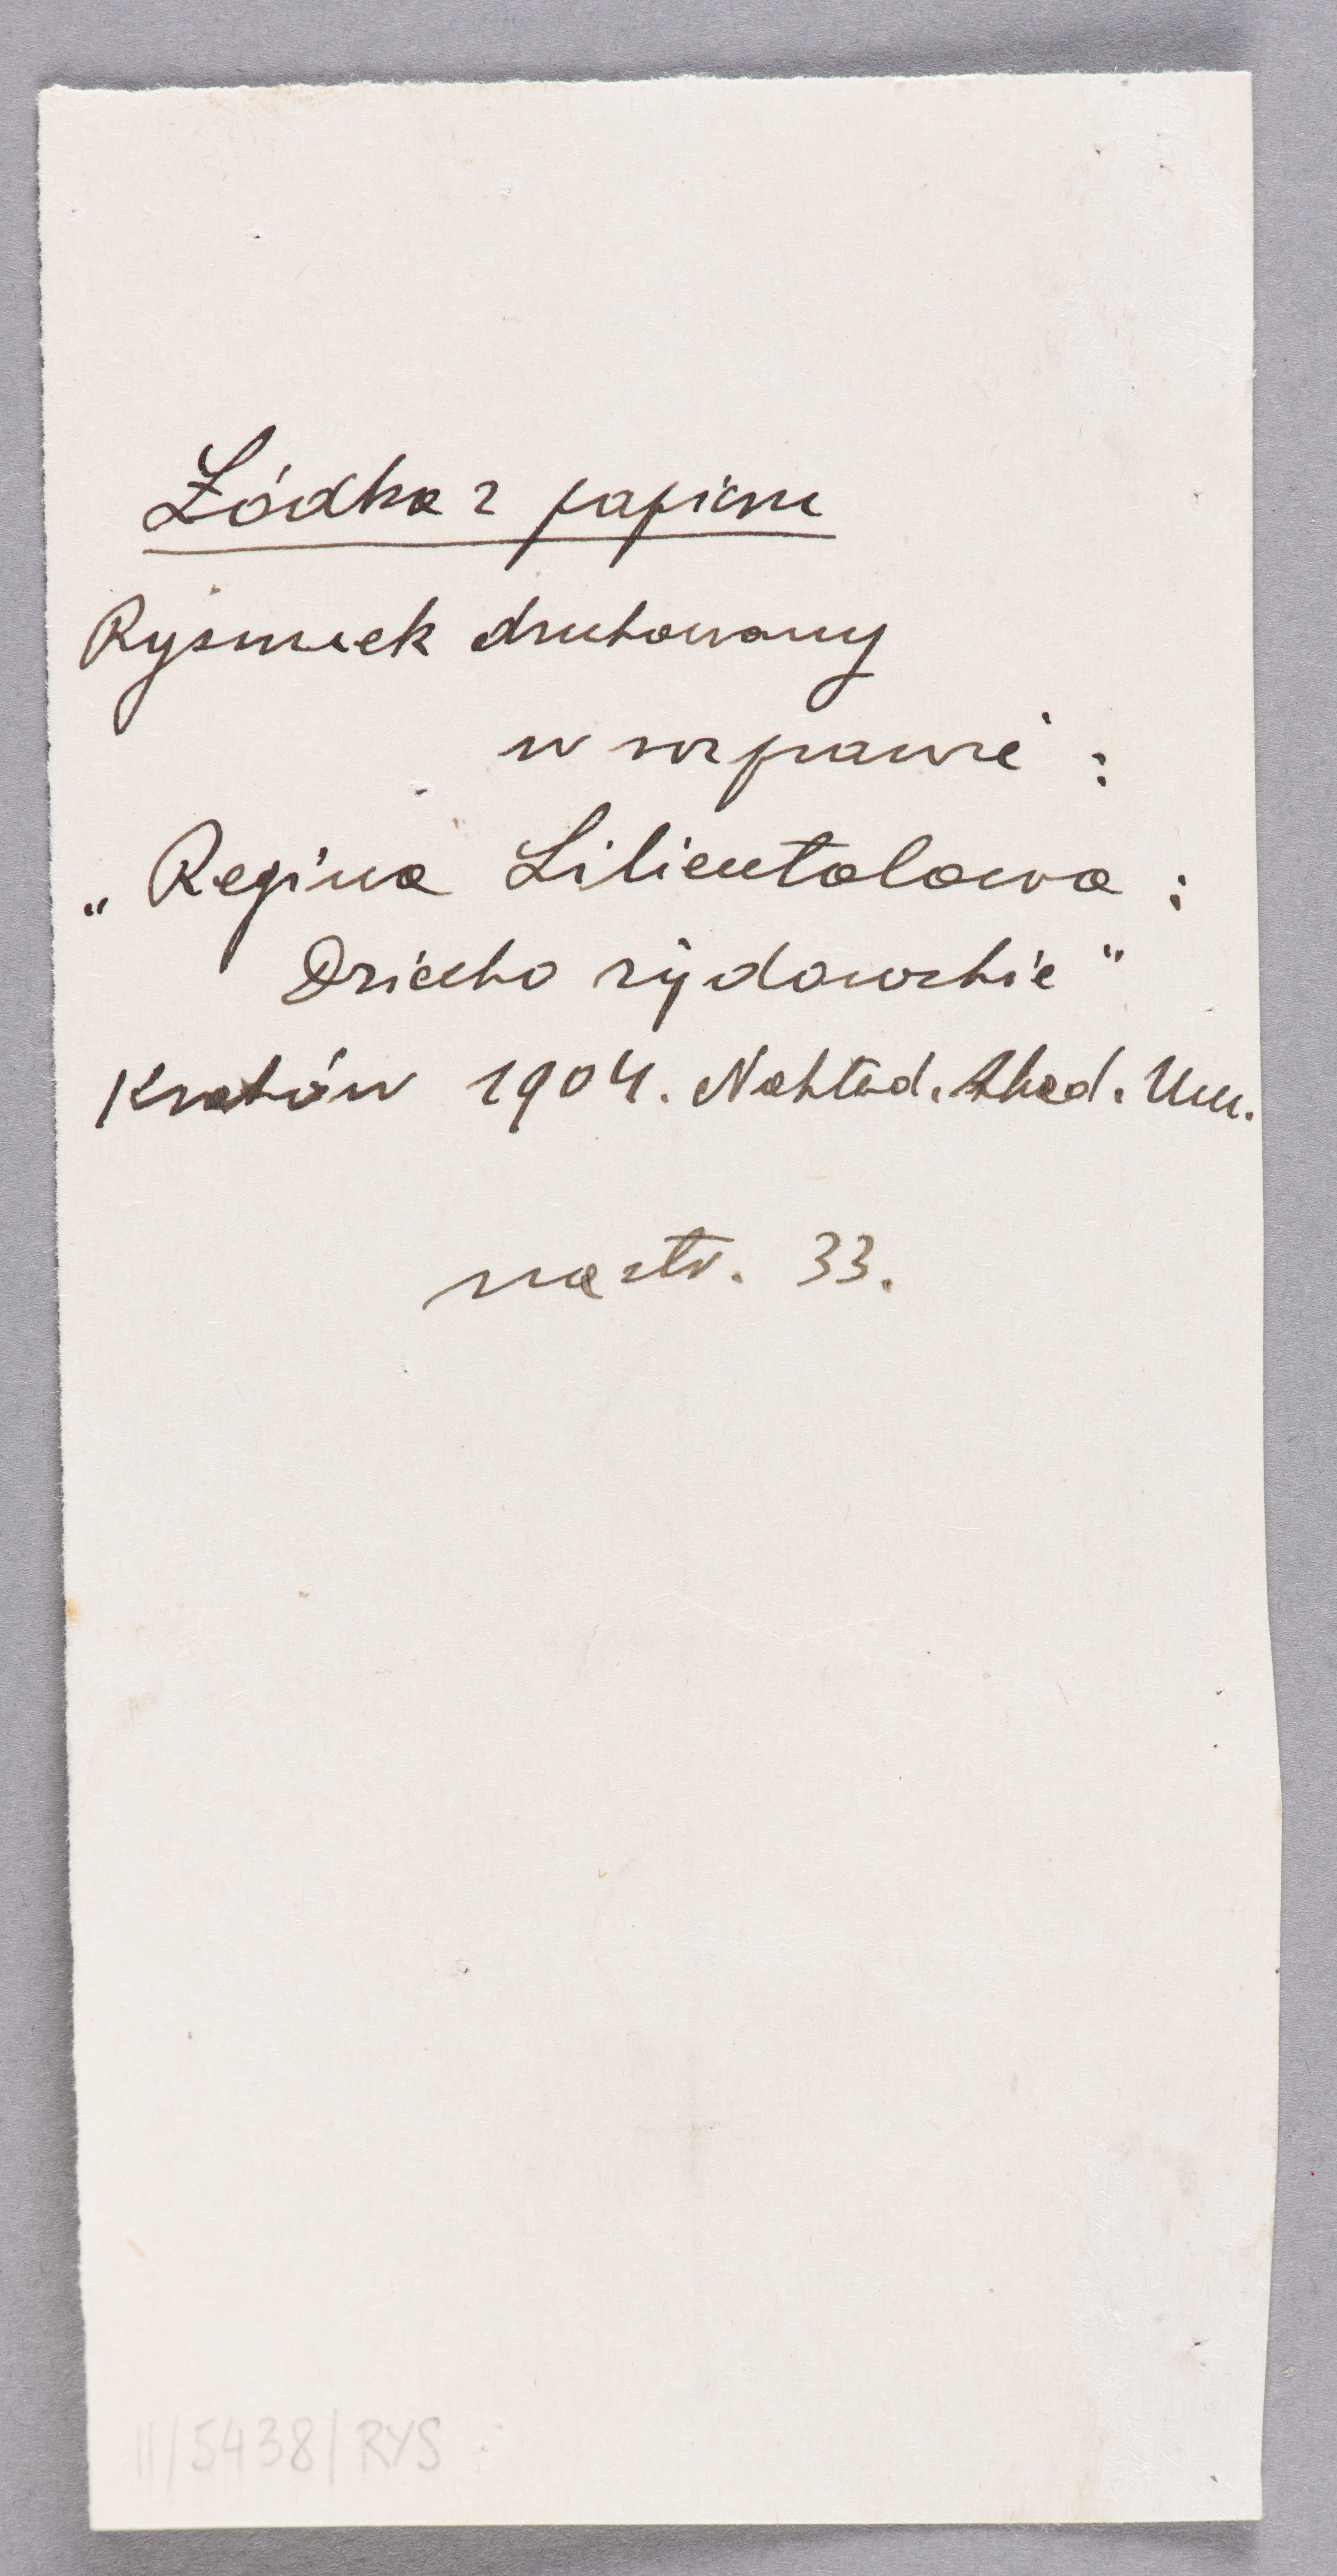 Łódka z papieru
Rysunek drukowany
w rozprawie :
„Regina Lilientalowa :
Dziecko żydowskie"
Kraków 1904. Nakład. Akad. Um.
na str. 33.
II/5438/RYS